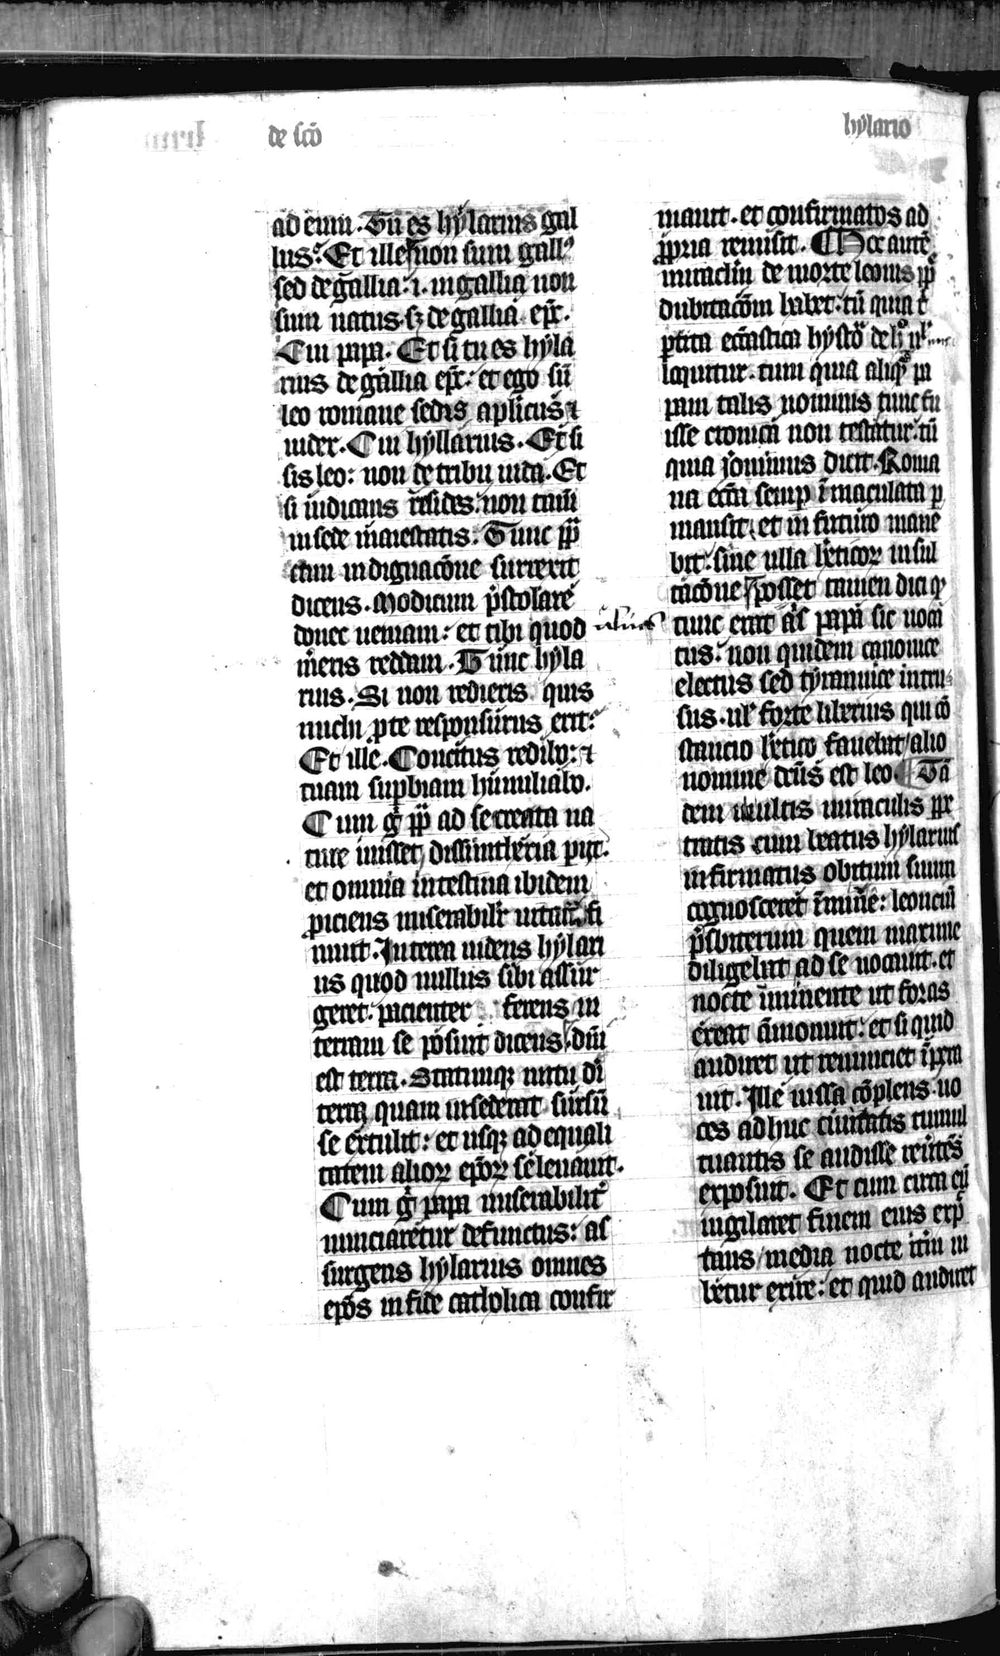 de sc̄o
hẏlario
ad eum. Tu es hẏlarius gal
lus. Et ille non sum gall⁹
sed de gallia: .i. in gallia non
sum natus. sꝫ de gallia ep̄c.
Cui papa. Et si tu es hẏla
rius de gallia ep̄c: et ego sū
leo romane sedis ap̄licus ⁊
iudex. Cui hẏllarius. Et si
sis leo: non de tribu iuda. Et
si iudicans resides: non tam̄
in sede maiestatis. Tunc pp̄
cum indignac̄one surrexit
dicens. Modicum p̄stolare
donec ueniam: et tibi quod
m̄ens reddam. Tunc hẏla
rius. Si non redieris quis
michi ꝓ te responsurus erit:
Et ille. Concitus redibo: ⁊
tuam suꝑbiam humiliabo.
Cum gͥ pp̄ ad secreata na
ture iuisset dissint̄eria
et omnia intestina ibidem
ꝓiciens miserabilr̄ uitam fi
niuit. Interea uidens hẏlari
us quod nullus sibi assur
geret. pacienter ferens in
terram se posuit dicens. dn̄i
est terra. Statimqꝫ nutu di
terra quam insederat sursū
se extulit: et usqꝫ ad equali
tatem alioꝝ ep̄oꝝ se leuauit.
Cum gͥ papa miserabilit̄
nunciaretur defunctus: as
surgens hẏlarius omnes
ep̄os in fide catholica confir
mauit. et confirmatos ad
ꝓpria remisit. Hoc autē
miraclm̄ de morte leonis pp̄
dubitac̄om habet. tū quia
ꝑtita ecc̄astica hẏsto de h̄
loquitur. tum quia aliqͣ pa
pam talis nominis tunc fu
isse cronica non testatur: tū
quia ieronimus dicit. Roma
na ecc̄a semꝑ īmaculata ꝑ
mansit. et in futuro mane
bit. sine ulla hr̄eticoꝝ insul
tac̄one posset tamen dici qꝫ
tunc erat al̄s papa sic uoca
tus: non quidem canonice
electus sed tẏrannice intru
sus. ul̄ forte liberius qui cō
stancio hr̄etico fauebat alio
nomine dc̄us est leo. Tā
dem multis miraculis ꝑpe
tratis cum beatus hẏlarius
infirmatus obitum suum
cognosceret īminē: leonciū
p̄sbiterum quem maxime
diligebat ad se uocauit. et
nocte iminente ut foras
exeat āmonuit: et si quid
audiret ut renunciet īpera
uit. Ille iussa cōplens. uo
ces adhuc ciuitatis tumul
tuantis se audisse reu̇tēs
exposuit. Et cum circa eū
uigilaret finem eius exp̄
tans media nocte itm̄ iu
betur exire: et quid audiret